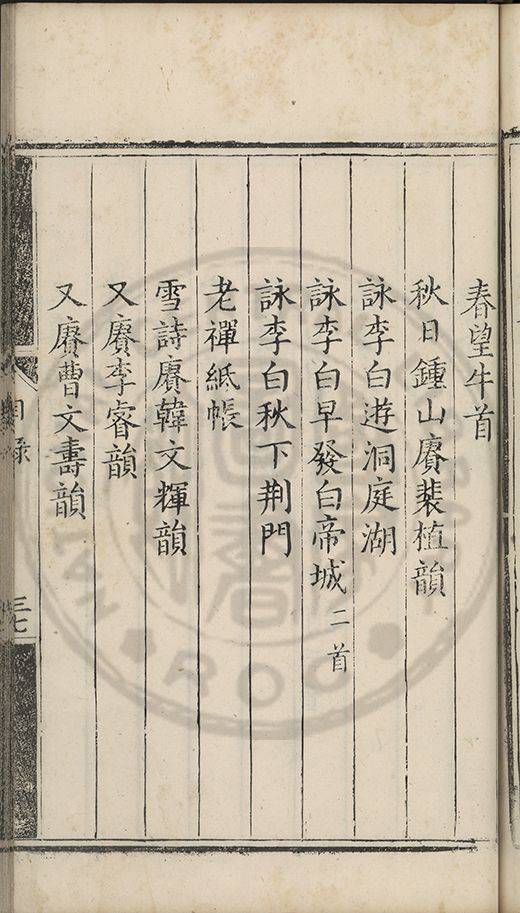 春望牛首
秋日鍾山賡裴植韻
詠李白遊洞庭湖
詠李白早發白帝城 二首
詠李白秋下荆門
老禪紙帳
雪詩賡韓文輝韻
又賡李睿韻
又賡曹文壽韻
目錄
三七